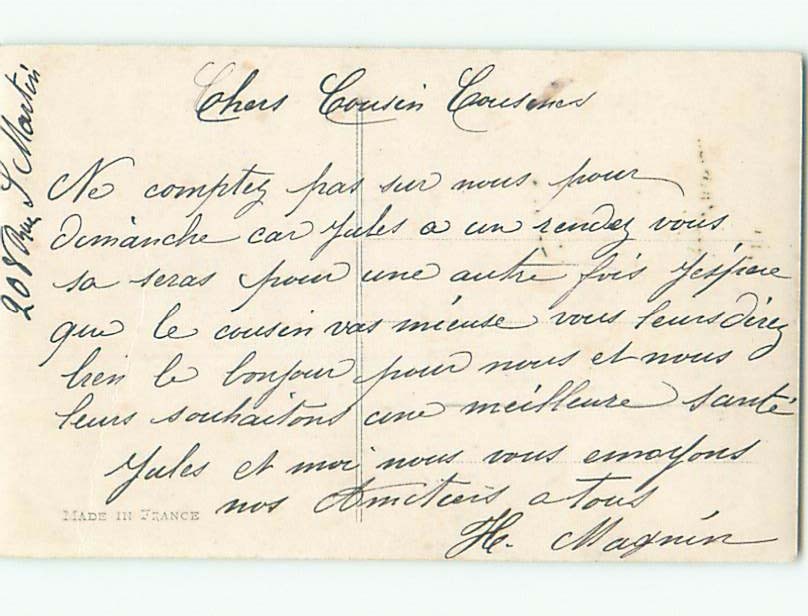 Chers Cousin Cousines
Ne comptez pas sur nous pour
dimanche car Jules a un rendez vous
sa seras pour une autre fois J'éspère
que le cousin vas mieuse vous leurs direz
bien le bonjour pour nous et nous
leurs souhaitons une meilleure santé
Jules et moi nous vous envoyons
nos Amitiers a tous
H. Magnin
MADE IN FRANCE
208 Rue S Martin